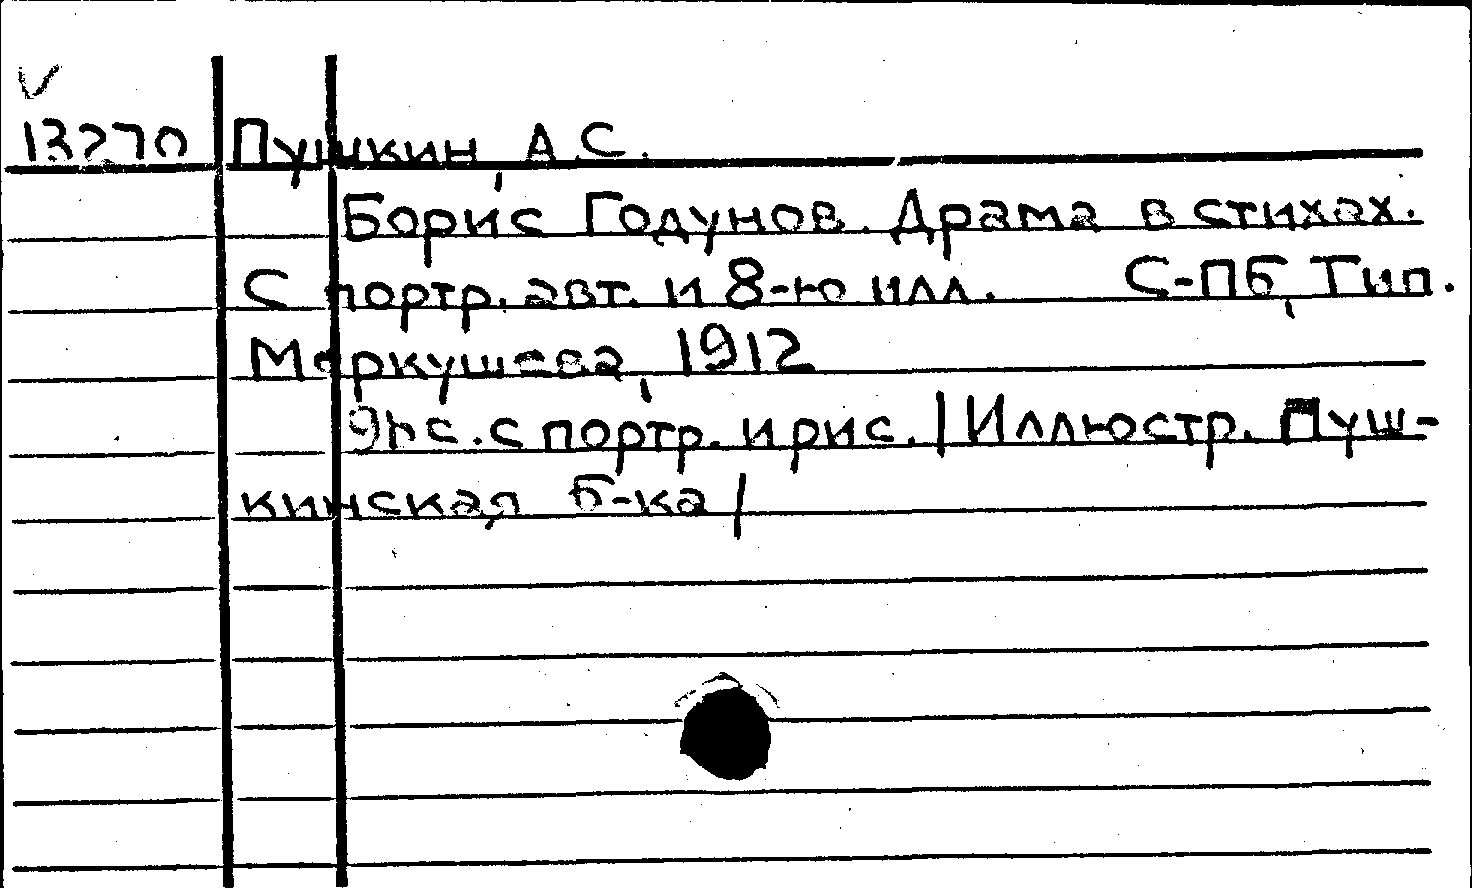 13270 Пушкин, А.С.
Борис Годунов. Драма в стихах.
С портр. авт. и 8-ю илл. С-Пб, Тип.
Меркушева, 1912
с. с портр. и рис. | Иллюстр. Пуш-
кинская б-ка |